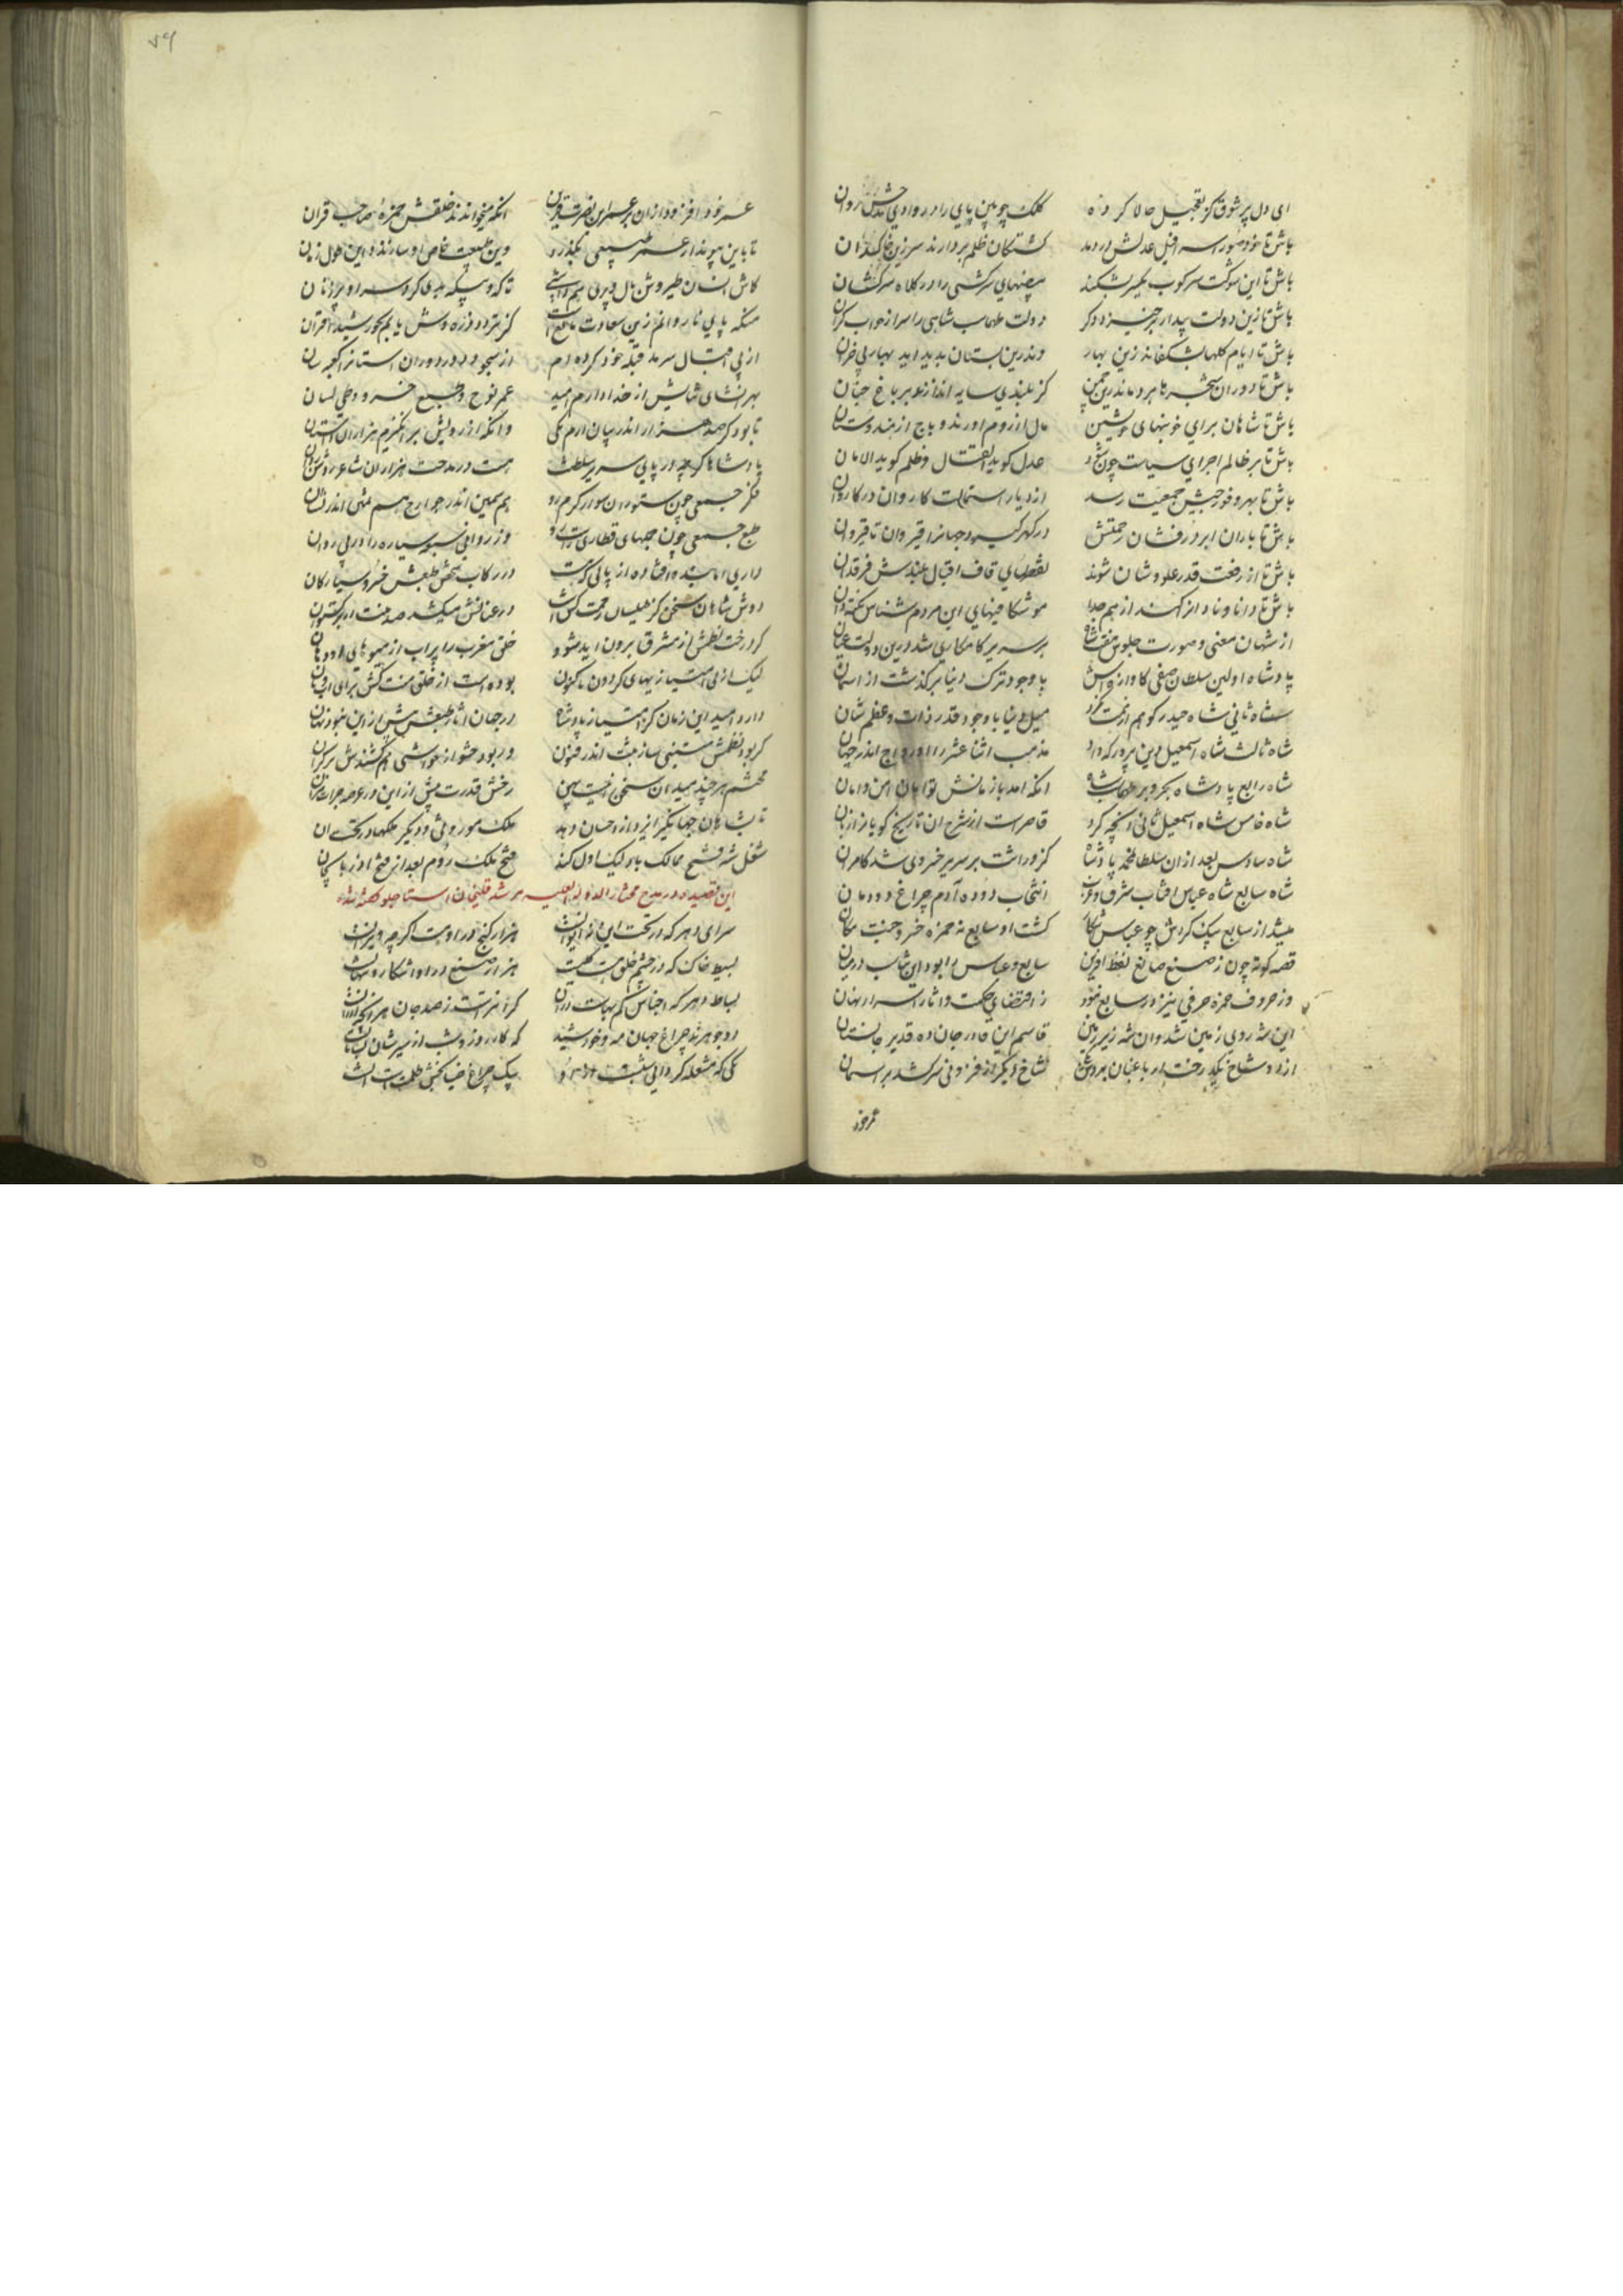 ای دل پر شوق کز تعجیل حالا کرده کلک چوبین پای را در وادی مدحش روان
باش تا خود صور اسرافیل عدلش دردمد کشتکان ظلم بردارند سر زین خاکدان
باش تا این شوکت سرکوب یکسر بشکند بیضهای سرکشی را در کلاه سرکشان
باش تا زین دولت بیدار برخیزد دکر دولت طهماسب شاهی را سر از خواب کران
باش تا ایام کلها بشکفاند زین بهار وندرین بستان پدید اید بهار بی خزان
باش تا دوران شجرها بردماند زین چمن کز بلندی سایه اندازند بر باغ جنان
باش تا شاهان برای خونبهای خویشتن مال از روم اورند و باج از هندوستان
باش تا بر ظالم اجرای سیاست چون شود عدل کوید القتال و ظلم کوید الامان
باش تا بهر وفور جیش جمعیت رسد از دیار استمالت کاروان در کاروان
باش تا باران ابر درفشان رحمتش در کهر کیرد جهانرا قیروان تا قیروان
باش تا از رفعت قدر علو شان شوند نقطهای قاف اقبال بلندش فرقدان
باش تا دانا و نادان از کنند از هم جدا موشکافیهای این مردم شناس نکته دان
از شهان معنی و صورت جلوس هفت شاه بر سریر کامکاری شد درین دولت عیان
پادشاه اولین سلطان صفی کاوازه اش با وجود ترک دنیا برکذشت از اسمان
شاه ثانی شاه حیدر کو هم از همت نکرد میل دنیا با وجود قدر ذات و عظم شان
شاه ثالث شاه اسمعیل دین پرور که داد مذهب اثنا عشر را او رواج اندر جهان
شاه رابع پادشاه بحر و بر طهماسب شاه انکه امد با زمانش توامان امن و امان
شاه خامس شاه اسمعیل ثانی انچه کرد قاصر است از شرح ان تاریخ کویانرا زبان
شاه سادس بعد از ان سلطان محمد پادشاه کز وراثت بر سریر خسروی شد کامران
شاه سابع شاه عباس افتاب شرق و غرب انتخاب دوده آدم چراغ دودمان
میشد از سابع یک کردش چو عباس اشکار کشت او سابع نه حمزه خسرو جنت مکان
قصه کوته چون ز صنع صانع لفظ افرین سابع و عباس را بود این تناسب درمیان
وز حروف حمزه حرفی نیز در سابع نبود ز اقتضای حکمت و اثار اسرار نهان
این شه روی زمین شد وان شه زیر زمین قاسم این قادر جان ده قدیر جانستان
از دو شاخ یک درخت ار باغبان برد یکی شاخ دیکر از فزونی سرکشد بر اسمان
عمر خود
عمر خود افزود از ان بر عمر این نصرت قرین انکه میخواندند خلقش حمزه صاحب قران
تا باین پیوند از عمر طبیعی بکذرد وین طبیعت خاص او سازند در این طول زمان
کاش انسان طیروش بال و پری هم داشتی تا که و بیکه بدی کرد سر او پرزنان
منکه پای ناروانم زین سعادت مانع است کز تردد ذره وش یابم بخورشید اقتران
از پی اقبال سرمد قبله خود کرده ام از سجود دور دوران استانرا کعبه سان
بهر انشای ثنایش از خدا دارم امید عمر نوح و طبع خسرو وحی لسان
تا بود کز صد هزار اندر بیان ارم یکی وانکه از رویش برانکیزم هزاران داستان
پادشاها کرچه در پای سریر سلطنت هست در مدحت هزاران شاعر روشن روان
فکر جمعی چون ستوران سوار کرم رو هم یمین اندر جوارح هم مثنی اندر نشان
طبع جمعی چون جبهای قطاری راست رو وز روانی سبعه سیاره را در پی روان
داری اما بنده افتاده از پائی که هست در رکاب شخص طبعش خسرو سیارکان
دوش شاهان سخن کز طیلسان رحمت کش است در عنانش میکشد صد منت از برکستوان
کر درخت نظمش از مشرق برون اید میشود خلق مغرب را پر اب از میوهای او دهان
لیک از بی امتیازیهای کردون تا کنون بوده است از خلق منت کش برای اب و نان
دارد امید این زمان کز امتیاز پادشاه در جهان اثار طبعش بیش ازین نبود نهان
کر بود نظمش متینی سازمت اندر فنون ور بود حشو از حواشی هم کشندش بر کران
محتشم هر چند میدان سخن نیست پهن رخش قدرت بیش از این در عرصه جرات مران
تا بشاهان جهانکیر ایزد از احسان دهد ملک موروثی و دیکر ملکها در تحت ان
شغل شه فتح ممالک باد لیک اول کند فتح ملک روم بعد از فتح آذربایجان
این قصیده در مدح ممتاز الدوله العلیه مرشد قلیخان استاجلو کفته شده
سرای دهر که در تحت این نه ایوانست هزار کنج در او هست اکر چه ویرانست
بسیط خاک که در چشم خلق مشت کلیست هزار صنع در او اشکار و پنهانست
بساط دهر که اجناس کم بهاست در ان کرانترست ز صد جان هر انچه ارزانست
دو جوهرند چراغ جهان مه و خورشید که کار روز و شب از سیرشان بسامانست
یکی که مشعله کردانی شب است او را یک چراغ ضیا بخش ظلمت است